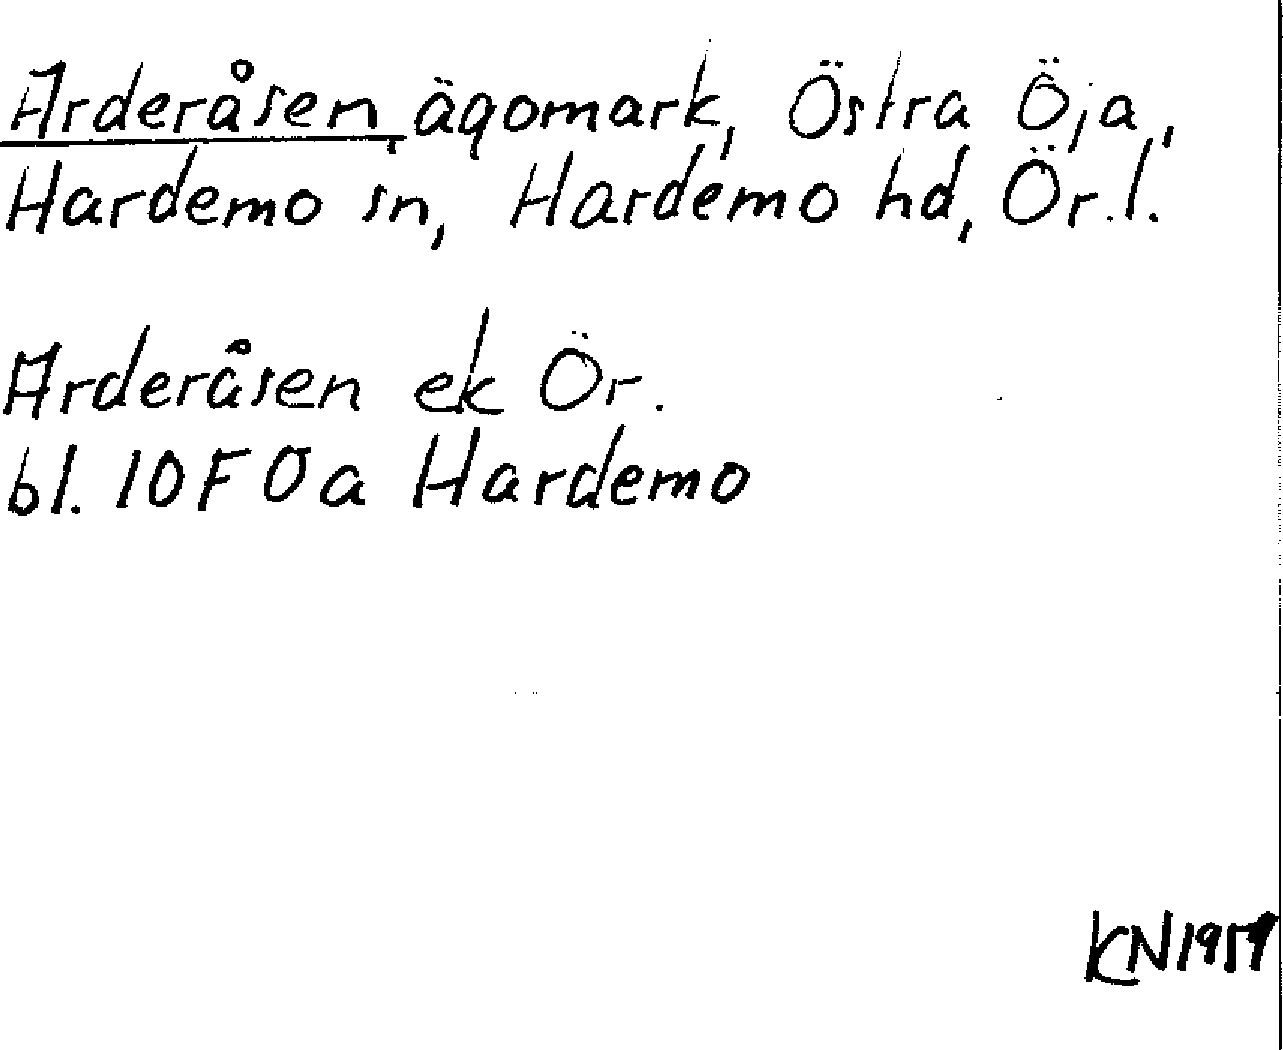 Arderåsen, ägomark, Östra Öja,
Hardemo sn, Hardemo hd, Ör.l.
Arderåsen ek Ör.
bl. 10F0a Hardemo
KN1959